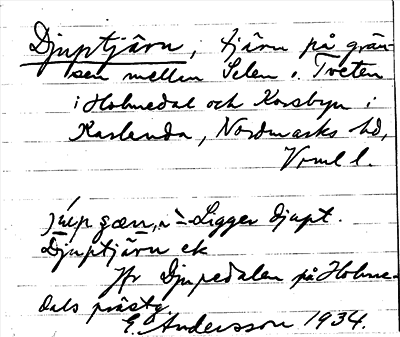 Djuptjärn, tjärn på grän-
sen mellan Selen i Tveten
i Holmedal och Korsbyn i
Karlanda, Nordmarks hd,
Vrml l.
Ligger djupt.
Djuptjärn ek
Jfr Djupedalen på Holme-
dals prästg.
E. Andersson 1934.